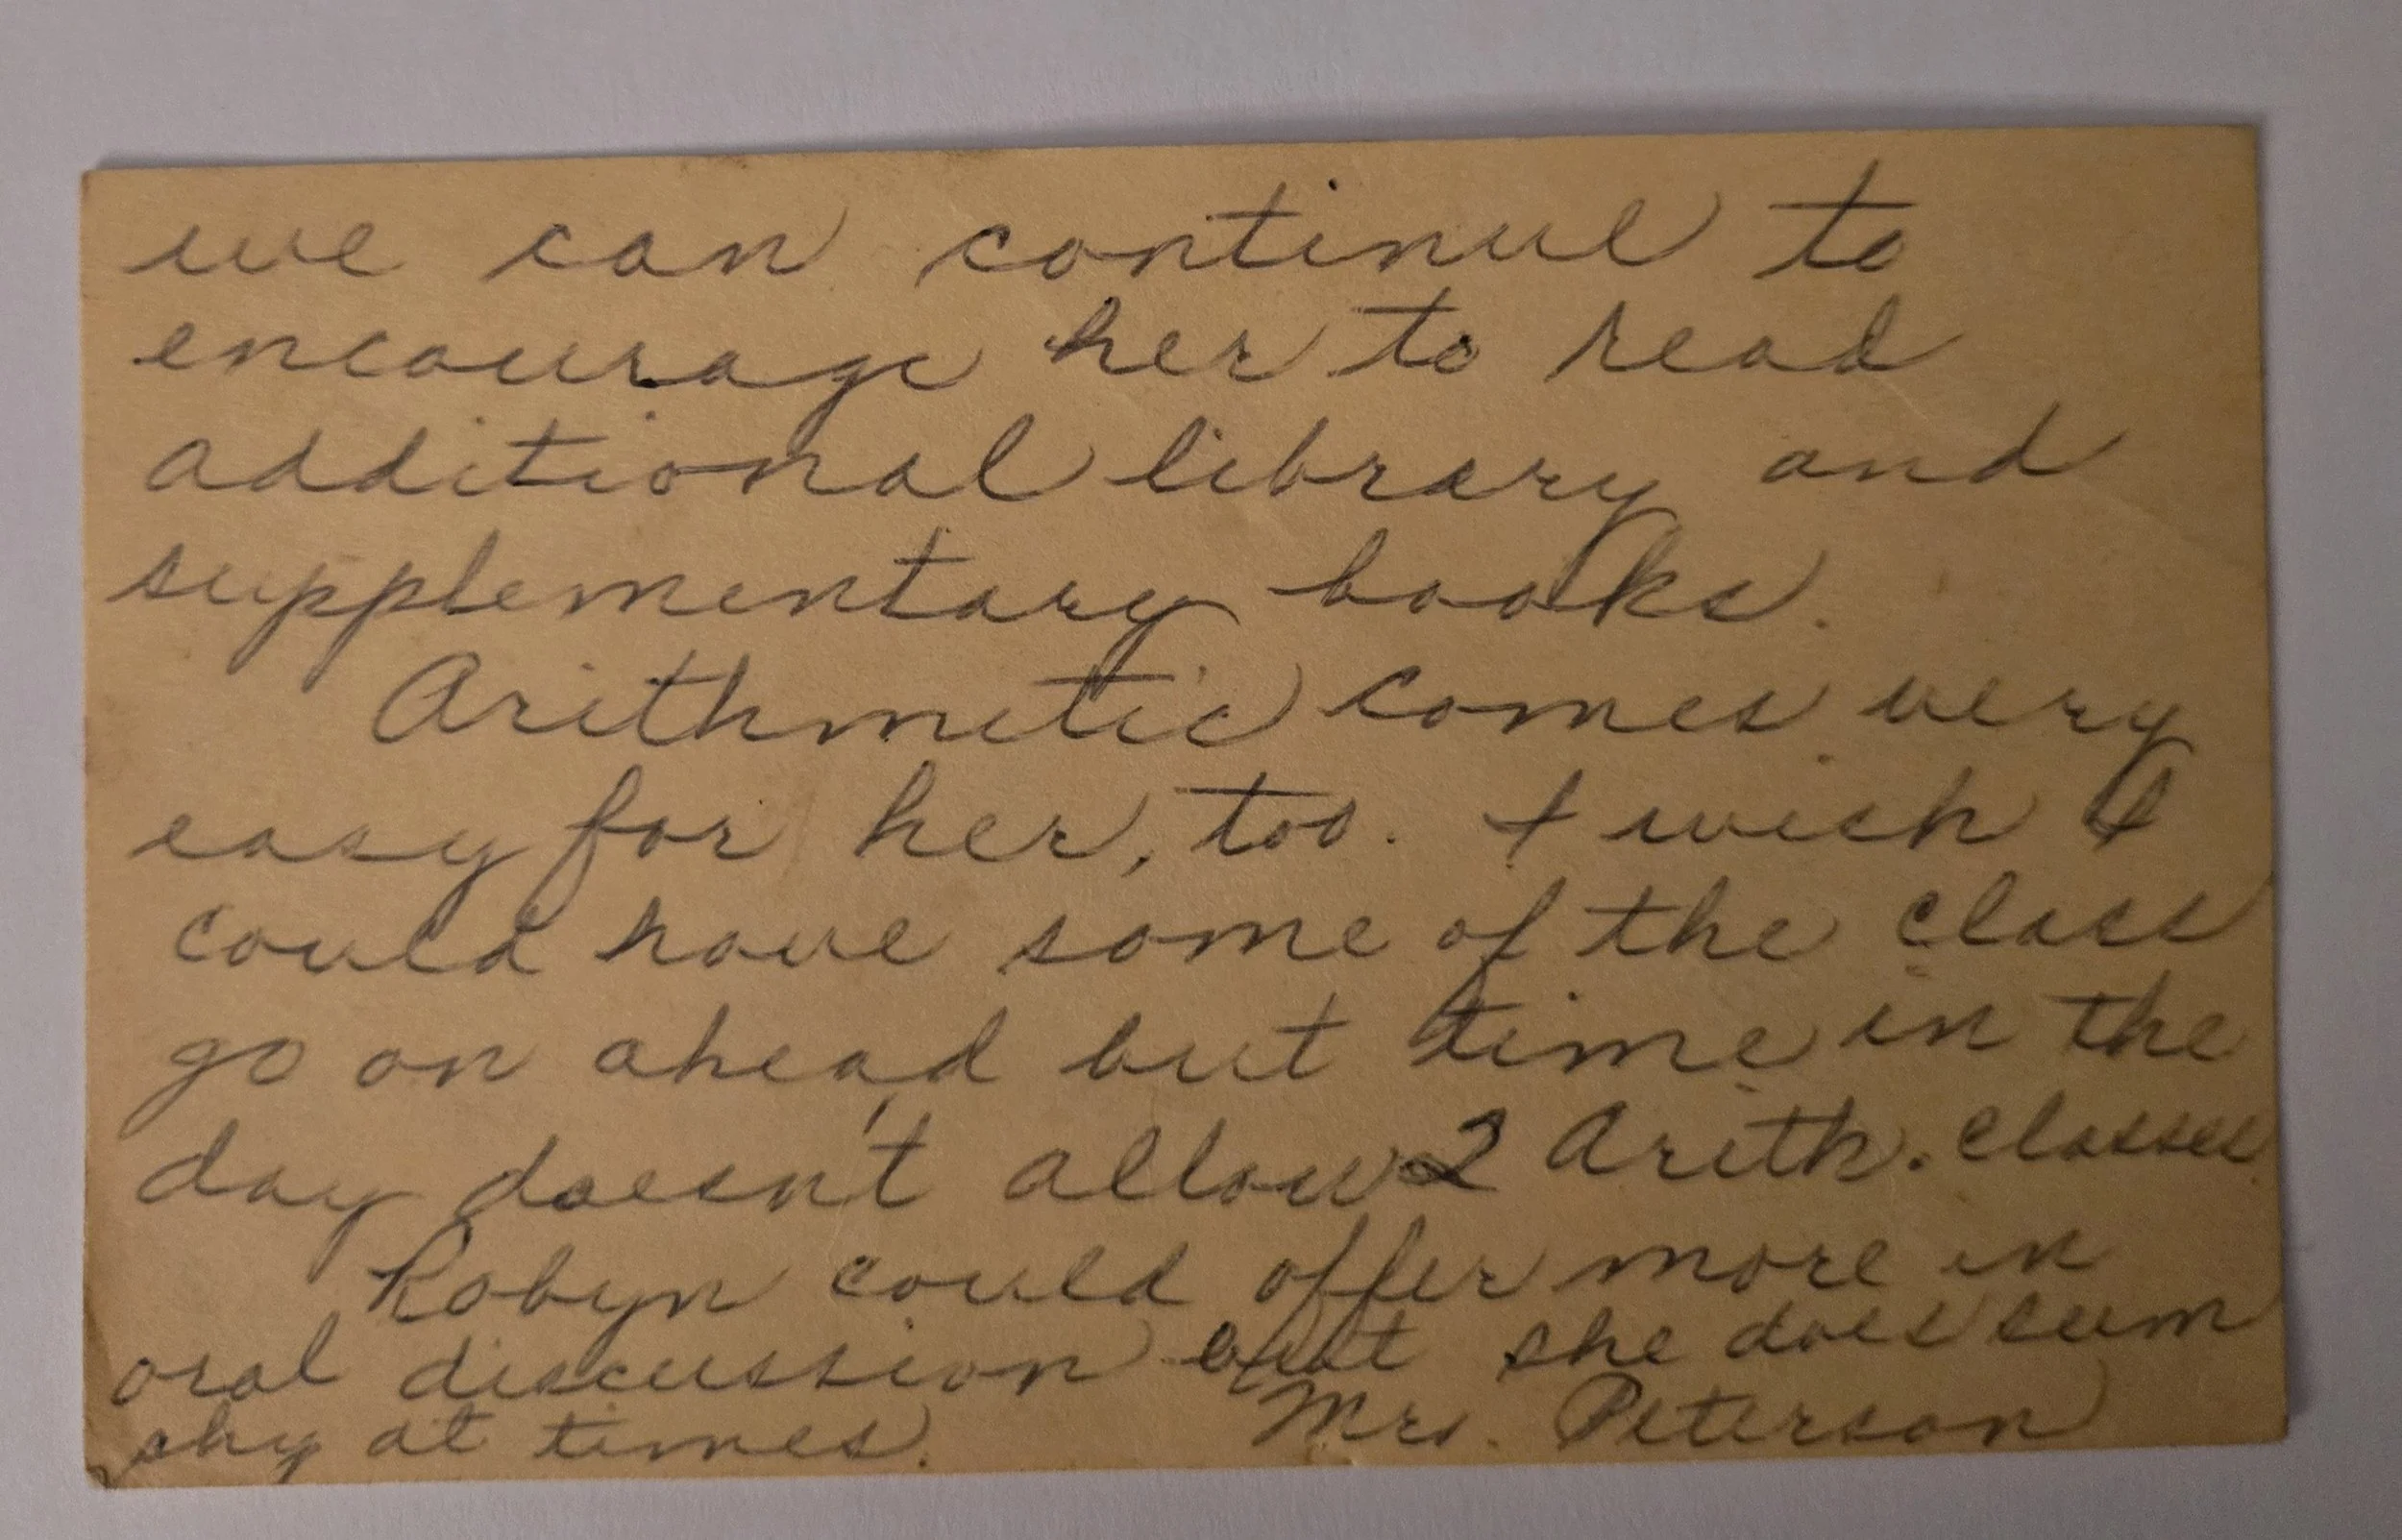 we can continue to
encourage her to read
additional library and
supplementary books.
Arithmetic comes very
easy for her, too. I wish I
could have some of the class
go on ahead but time in the
day doesn't allow 2 Arith. classes
Robyn could offer more in
oral discussion but she does seem
shy at times. Mrs. Peterson